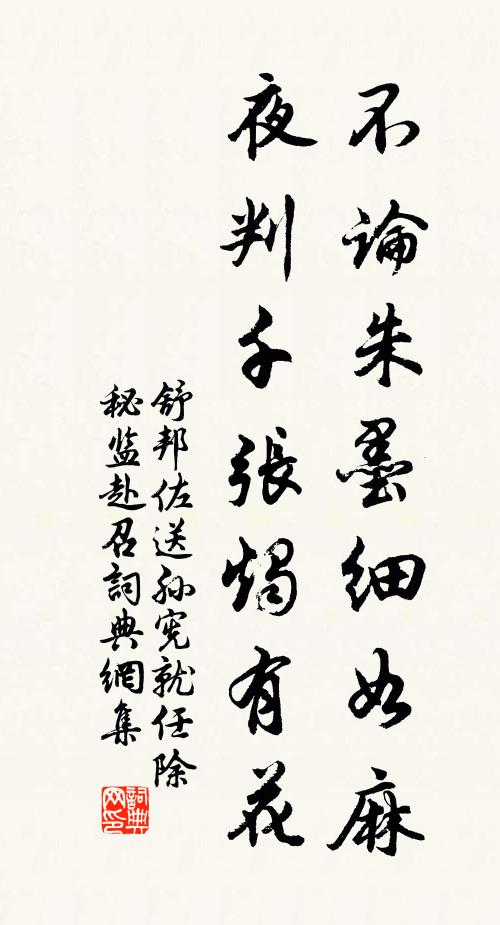 不論朱墨細如麻
夜判千張燭有花
舒邦佐送孙宪就任除
秘监赴召詞典網集
詞典网印